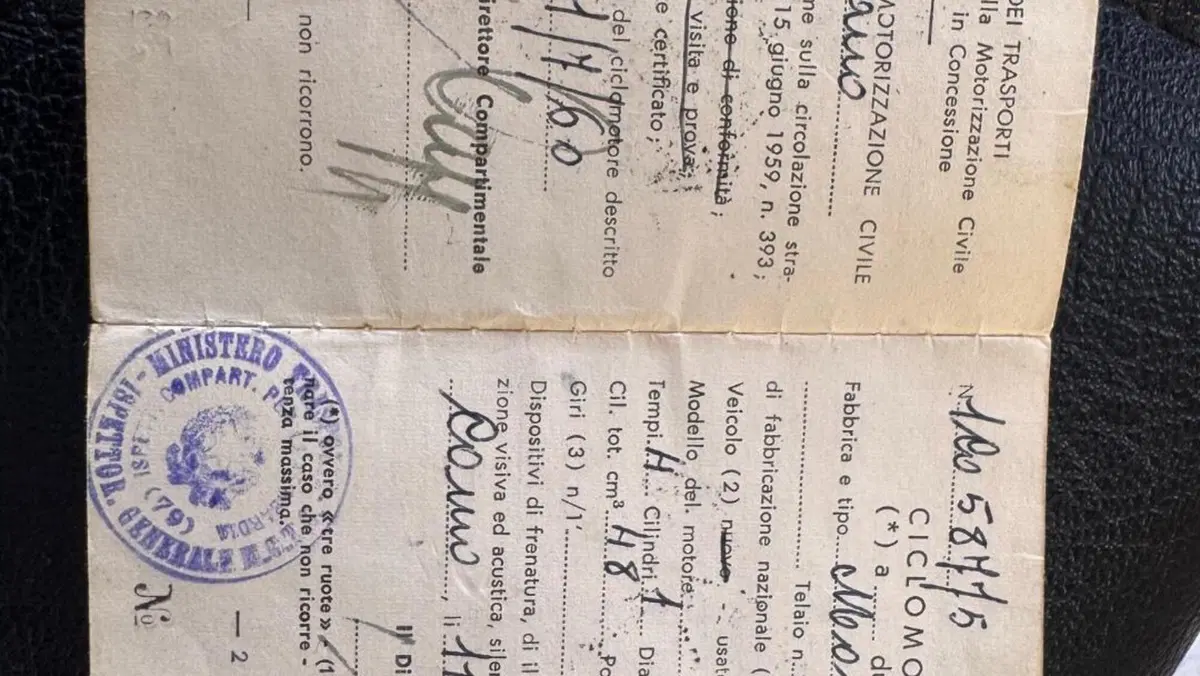 DEI TRASPORTI
lla Motorizzazione Civile
in Concessione
MOTORIZZAZIONE CIVILE
ne sulla circolazione stra-
15 giugno 1959, n. 393;
ione di conformità;
visita e prova;
e certificato;
del ciclomotore descritto
1/7/60
irettore Compartimentale
non ricorrono.
N 58775
CICLOMO
(*) a
Fabbrica e tipo
Telaio n.
di fabbricazione nazionale (
Veicolo (2) nuovo - usat
Modello del motore
Tempi 4 Cilindri 1 Dia
Cil. tot. cm³ 48 Po
Giri (3) n/1'
Dispositivi di frenatura, di il
zione visiva ed acustica, siler
Como, li 11
Il Di
(*) ovvero « tre ruote » (1
nare il caso che non ricorre-
tenza massima.
— 2
No
MINISTERO
ISPETTOR. GENERALE M.
COMPART.
(79)